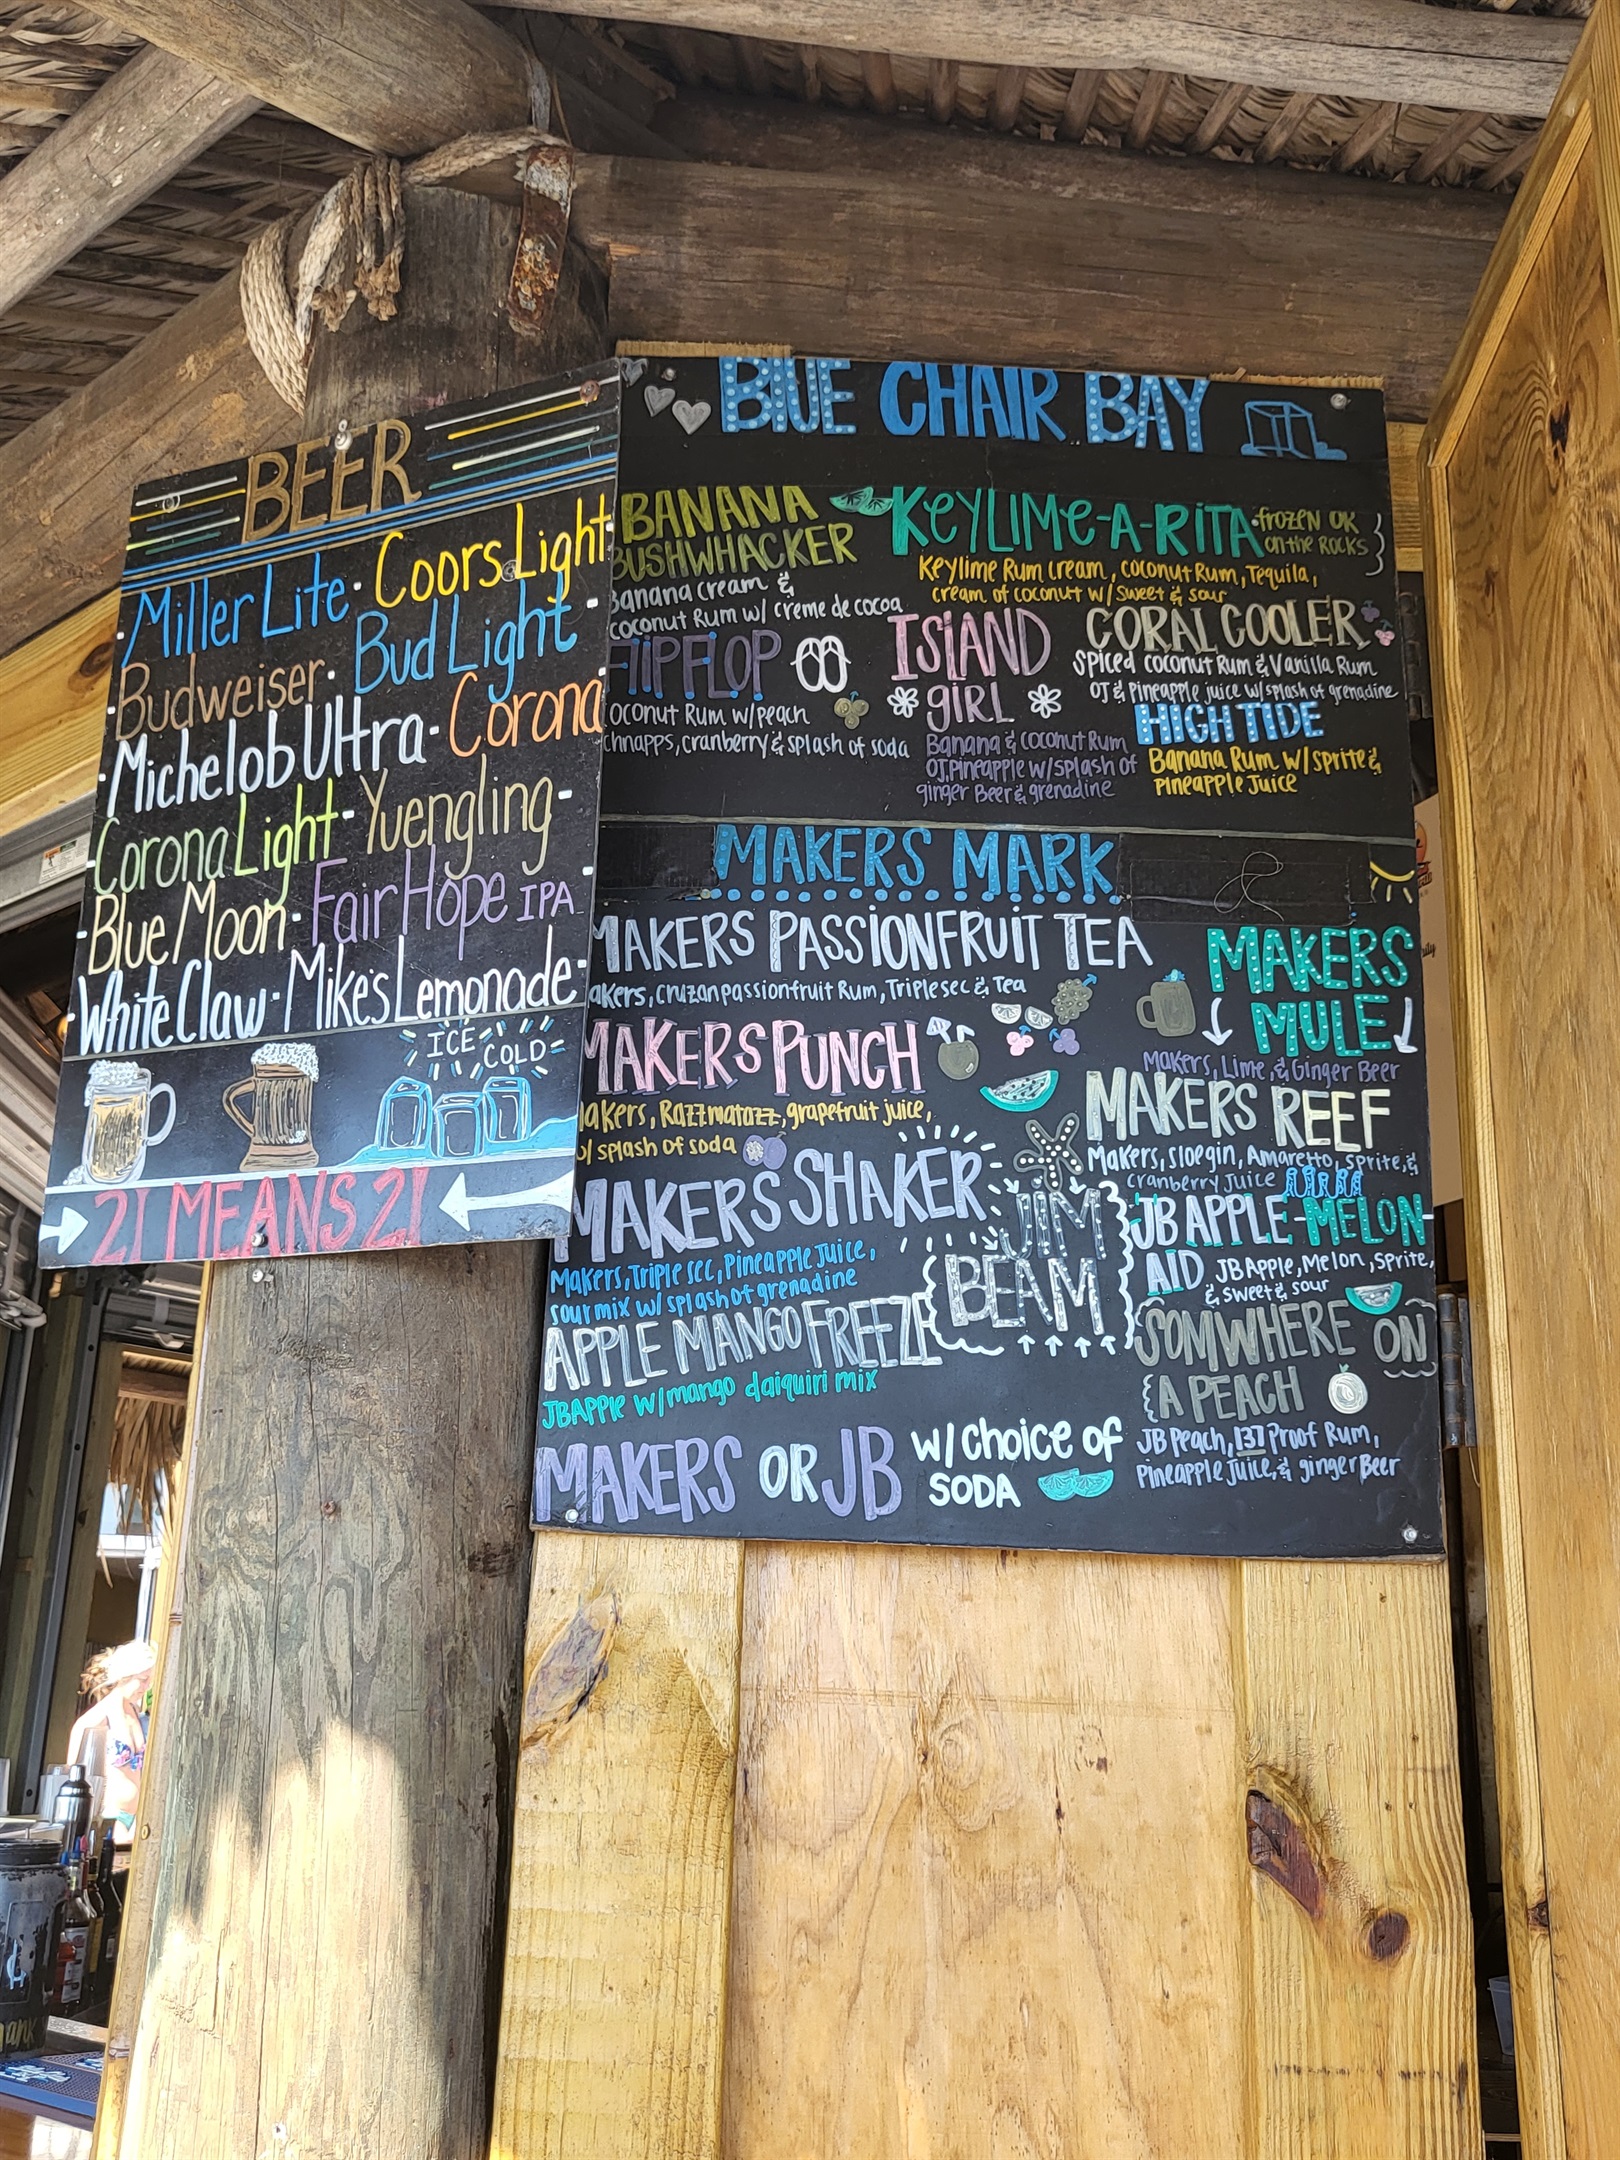 BEER
Miller Lite · Coors Light
Budweiser · Bud Light
Michelob Ultra · Corona
Corona Light · Yuengling
Blue Moon · Fair Hope IPA
White Claw · Mike's Lemonade
ICE COLD
21 MEANS 21
BLUE CHAIR BAY
BANANA
BUSHWHACKER
Banana cream &
coconut Rum w/ creme de cocoa
KEYLIME-A-RITA
frozen OR
on the Rocks
Keylime Rum cream, coconut Rum, Tequila,
cream of coconut w/ sweet & sour
FLIP FLOP
oconut Rum w/peach
chnapps, cranberry & splash of soda
ISLAND
GIRL
Banana & coconut Rum
OJ, Pineapple w/splash of
ginger Beer & grenadine
CORAL COOLER
Spiced coconut Rum & Vanilla Rum
OJ & Pineapple juice w/splash of grenadine
HIGH TIDE
Banana Rum w/sprite &
Pineapple Juice
MAKERS MARK
MAKERS PASSIONFRUIT TEA
akers, cruzan passionfruit Rum, Triplesec & Tea
MAKERS PUNCH
Makers, Razzmatazz, grapefruit juice,
w/ splash of soda
MAKERS SHAKER
Makers, Triple sec, Pineapple Juice,
sour mix w/ splash of grenadine
MAKERS
MULE
Makers, Lime, & Ginger Beer
MAKERS REEF
Makers, sloegin, Amaretto, sprite, &
cranberry Juice
JIM
BEAM
APPLE MANGO FREEZE
JBAPPle w/mango daiquiri mix
JB APPLE-MELON-
AID JBApple, Melon, Sprite,
& sweet & sour
SOMWHERE ON
A PEACH
JB Peach, 137 Proof Rum,
Pineapple Juice, & ginger Beer
MAKERS OR JB w/choice of
SODA